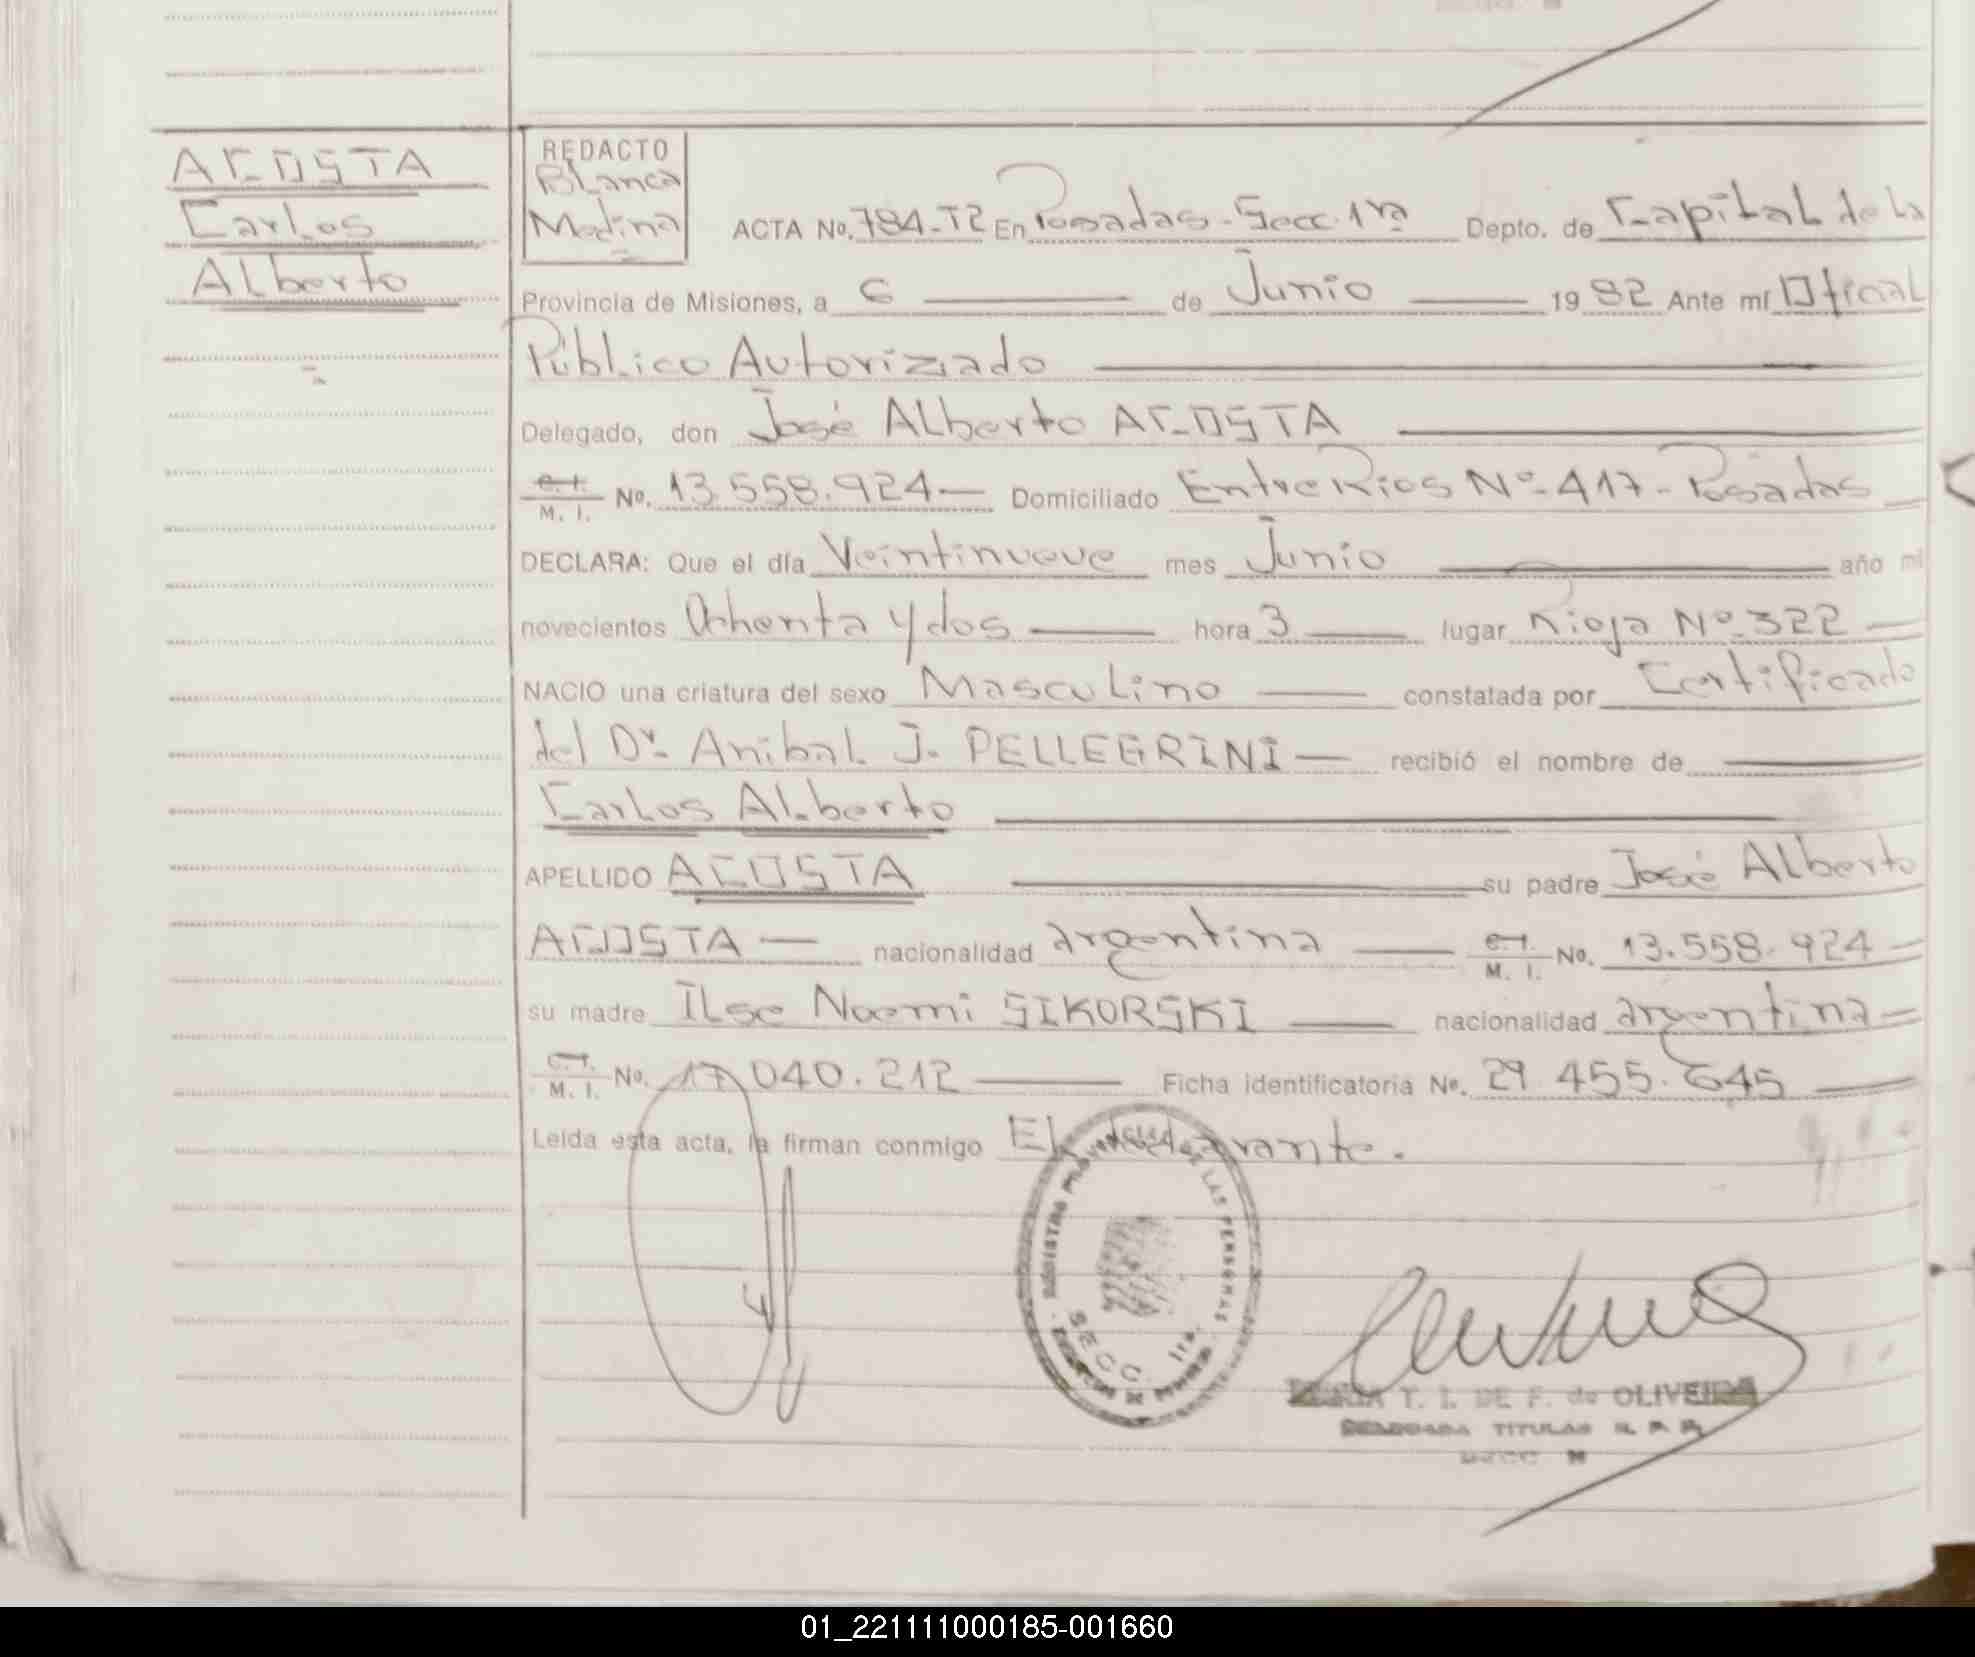 ACOSTA
Carlos
Alberto
REDACTO
Blanca
Medina
ACTA No. 784-T2 En Posadas-Secc. 1ra Depto. de Capital de la
Provincia de Misiones, a 6 de Junio 1982 Ante mí Oficial
Público Autorizado
Delegado, don José Alberto ACOSTA
C. I. M. I. No. 13.558.924 — Domiciliado Entre Rios Nº 417 - Posadas
DECLARA: Que el día Veintinueve mes Junio año mi
novecientos Ochenta y dos hora 3 lugar Rioja Nº 322
NACIO una criatura del sexo Masculino constatada por Certificado
del Dr. Anibal J. PELLEGRINI — recibió el nombre de
Carlos Alberto
APELLIDO ACOSTA su padre José Alberto
ACOSTA — nacionalidad argentina C. I. M. I. No. 13.558.924
su madre Ilse Noemi SIKORSKI nacionalidad argentina
C. I. M. I. No. 17.040.212 Ficha identificatoria No. 29.455.645
Leída esta acta, la firman conmigo El declarante.
REGISTRO PROVINCIAL DE LAS PERSONAS
SECC. 1ra.
T. I. DE F. de OLIVEIRA
DELEGADA TITULAR R. P. P.
SECC
01_221111000185-001660